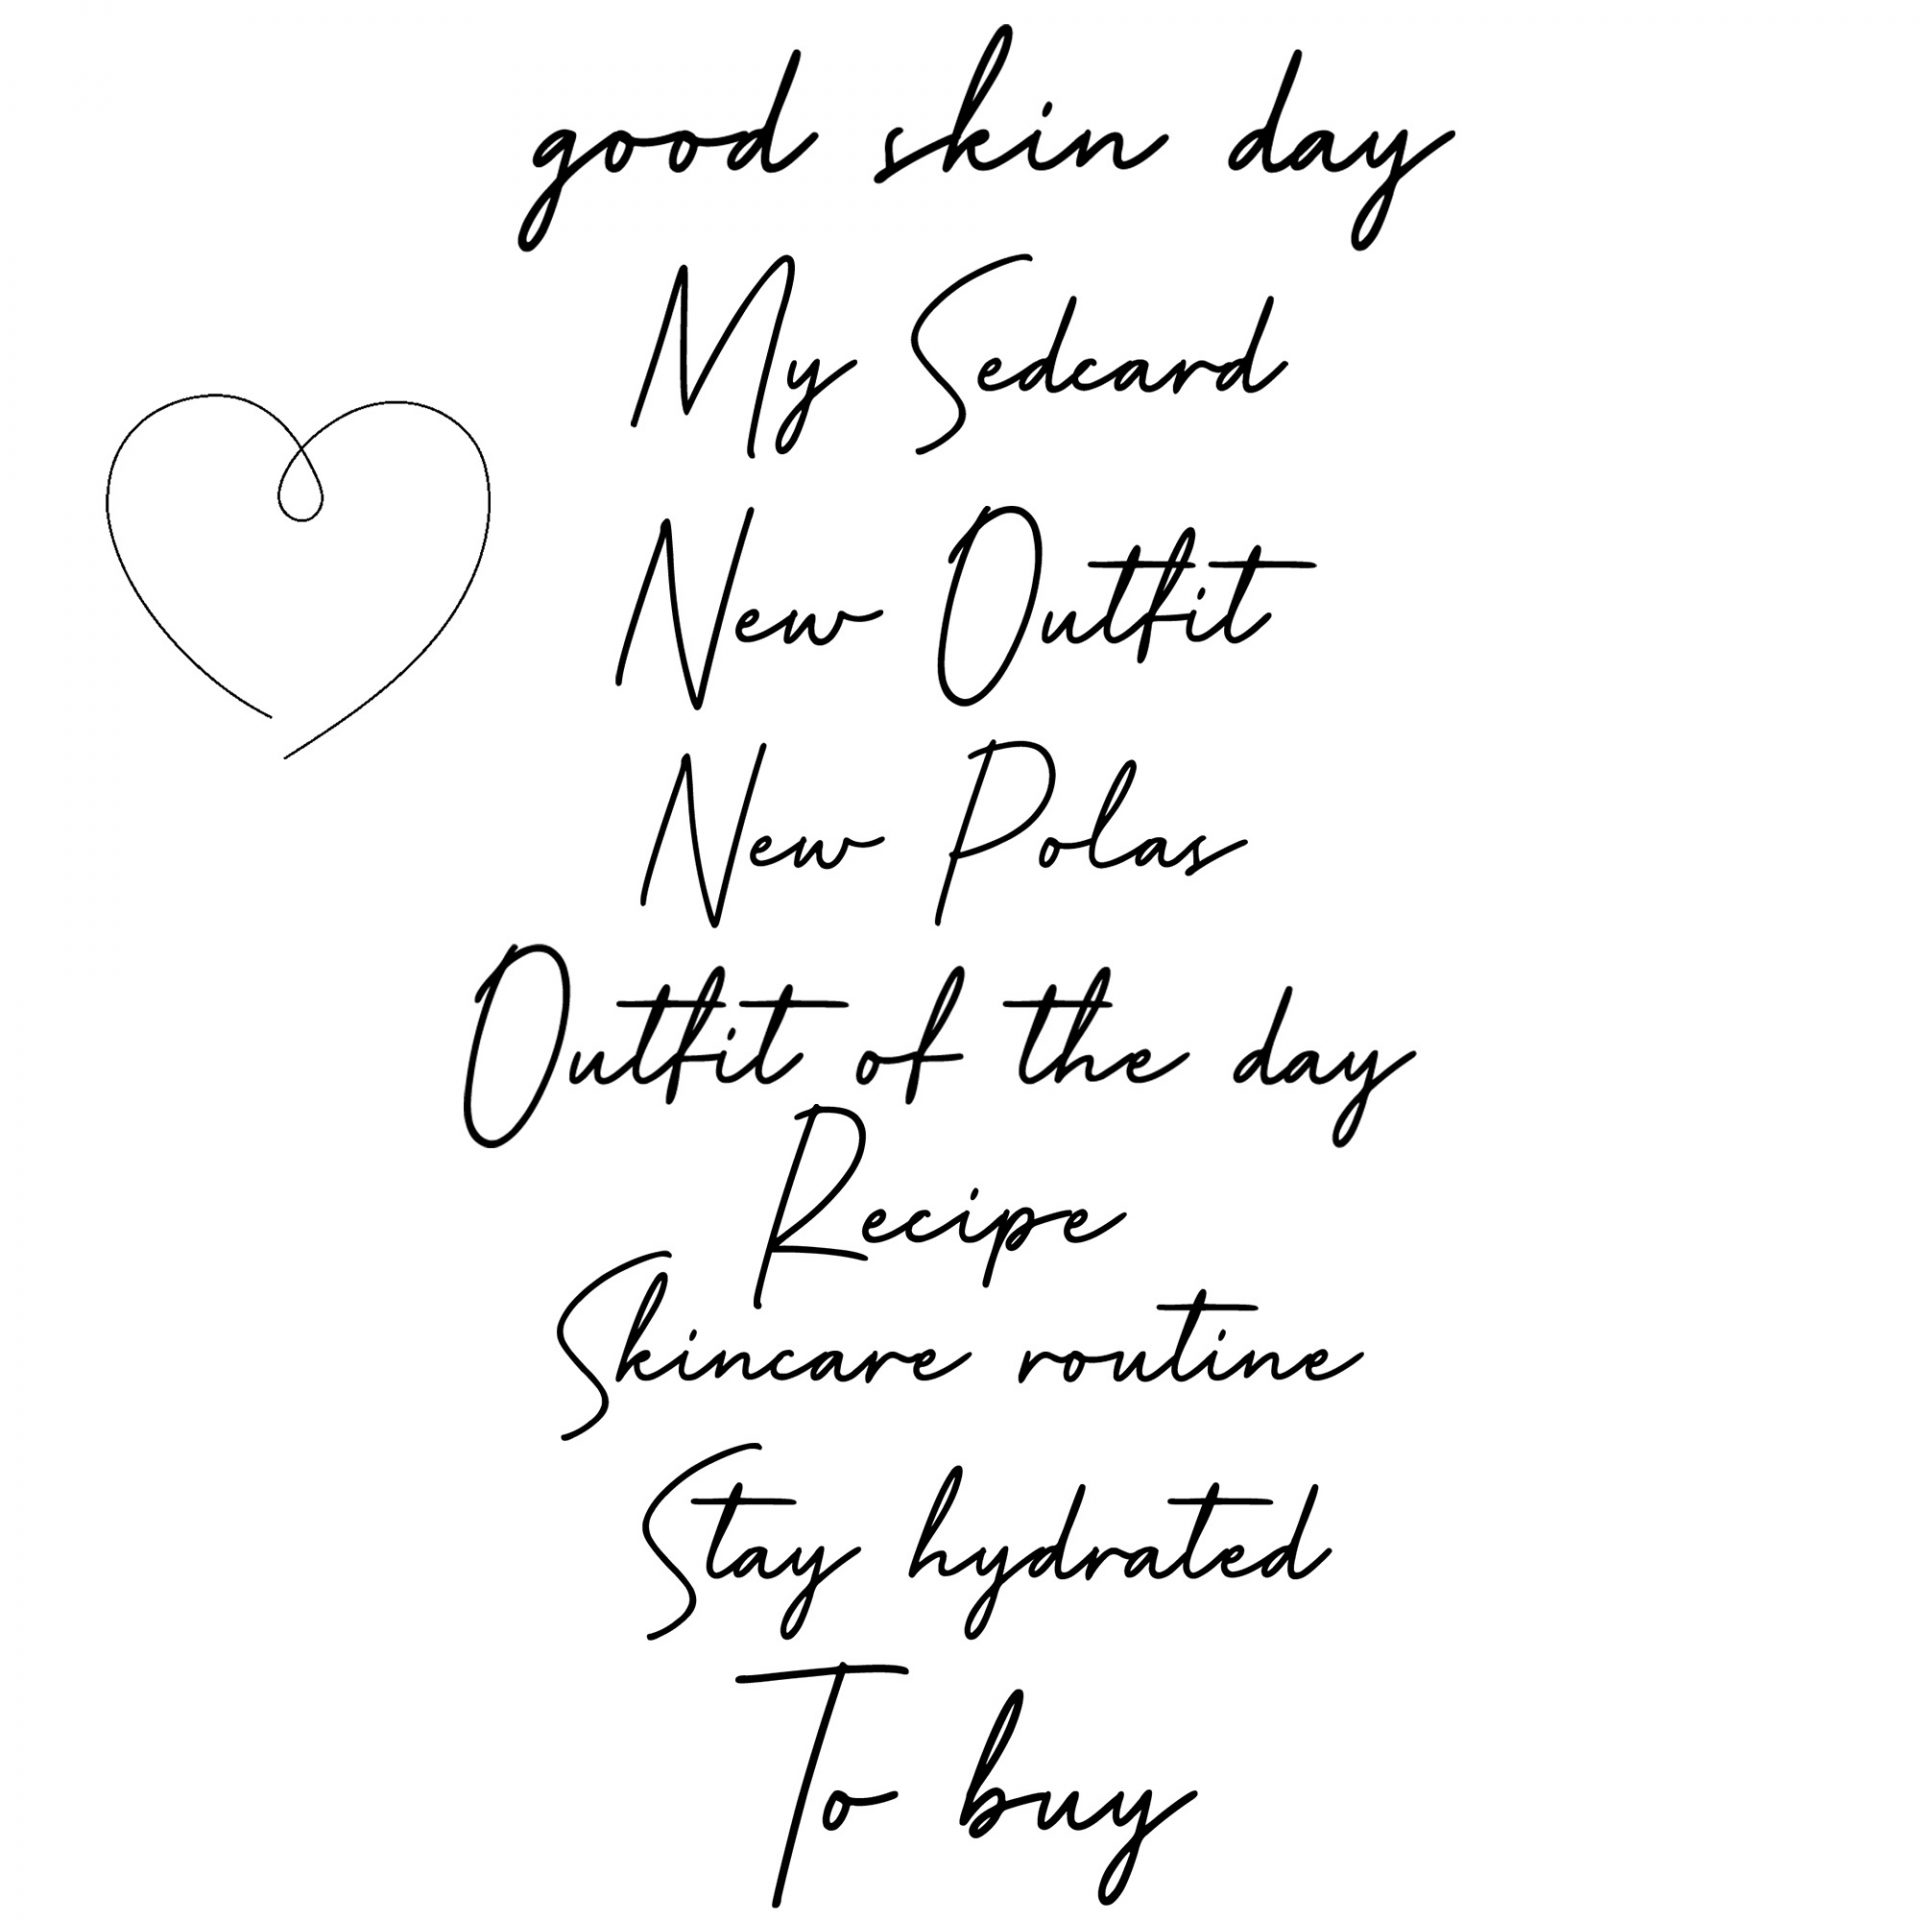 good skin day
My Sedcard
New Outfit
New Polas
Outfit of the day
Recipe
Skincare routine
Stay hydrated
To buy